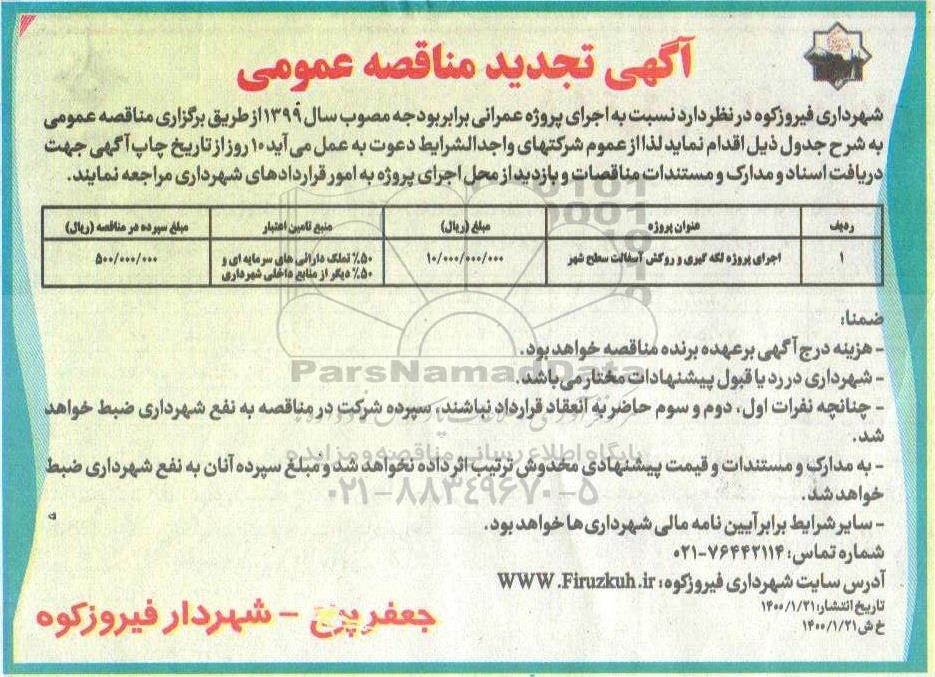 آگهی تجدید مناقصه عمومی
شهرداری فیروزکوه در نظر دارد نسبت به اجرای پروژه عمرانی برابر بودجه مصوب سال ۱۳۹۹ از طریق برگزاری مناقصه عمومی
به شرح جدول ذیل اقدام نماید لذا از عموم شرکتهای واجدالشرایط دعوت به عمل می آید ۱۰ روز از تاریخ چاپ آگهی جهت
دریافت اسناد و مدارک و مستندات مناقصات و بازدید از محل اجرای پروژه به امور قراردادهای شهرداری مراجعه نمایند.
ردیف عنوان پروژه مبلغ (ریال) منبع تامین اعتبار مبلغ سپرده در مناقصه (ریال)
۱ اجرای پروژه لکه گیری و روکش آسفالت سطح شهر ۱۰/۰۰۰/۰۰۰/۰۰۰ ۵۰٪ تملک دارائی های سرمایه ای و ۵۰۰/۰۰۰/۰۰۰
۵۰٪ دیگر از منابع داخلی شهرداری
ضمنا:
- هزینه درج آگهی بر عهده برنده مناقصه خواهد بود.
- شهرداری در رد یا قبول پیشنهادات مختار می باشد.
- چنانچه نفرات اول، دوم و سوم حاضر به انعقاد قرارداد نباشند، سپرده شرکت در مناقصه به نفع شهرداری ضبط خواهد
شد.
- به مدارک و مستندات و قیمت پیشنهادی مخدوش ترتیب اثر داده نخواهد شد و مبلغ سپرده آنان به نفع شهرداری ضبط
خواهد شد.
- سایر شرایط برابر آیین نامه مالی شهرداری ها خواهد بود.
شماره تماس: ۷۶۴۴۲۱۱۴-۰۲۱
آدرس سایت شهرداری فیروزکوه: WWW.Firuzkuh.ir
تاریخ انتشار: ۱۴۰۰/۱/۲۱
خ ش ۱۴۰۰/۱/۲۱
جعفر - شهردار فیروزکوه
ParsNamadData
پایگاه اطلاع رسانی مناقصه و مزایده
۰۲۱-۸۸۳۴۹۶۷۰-۵